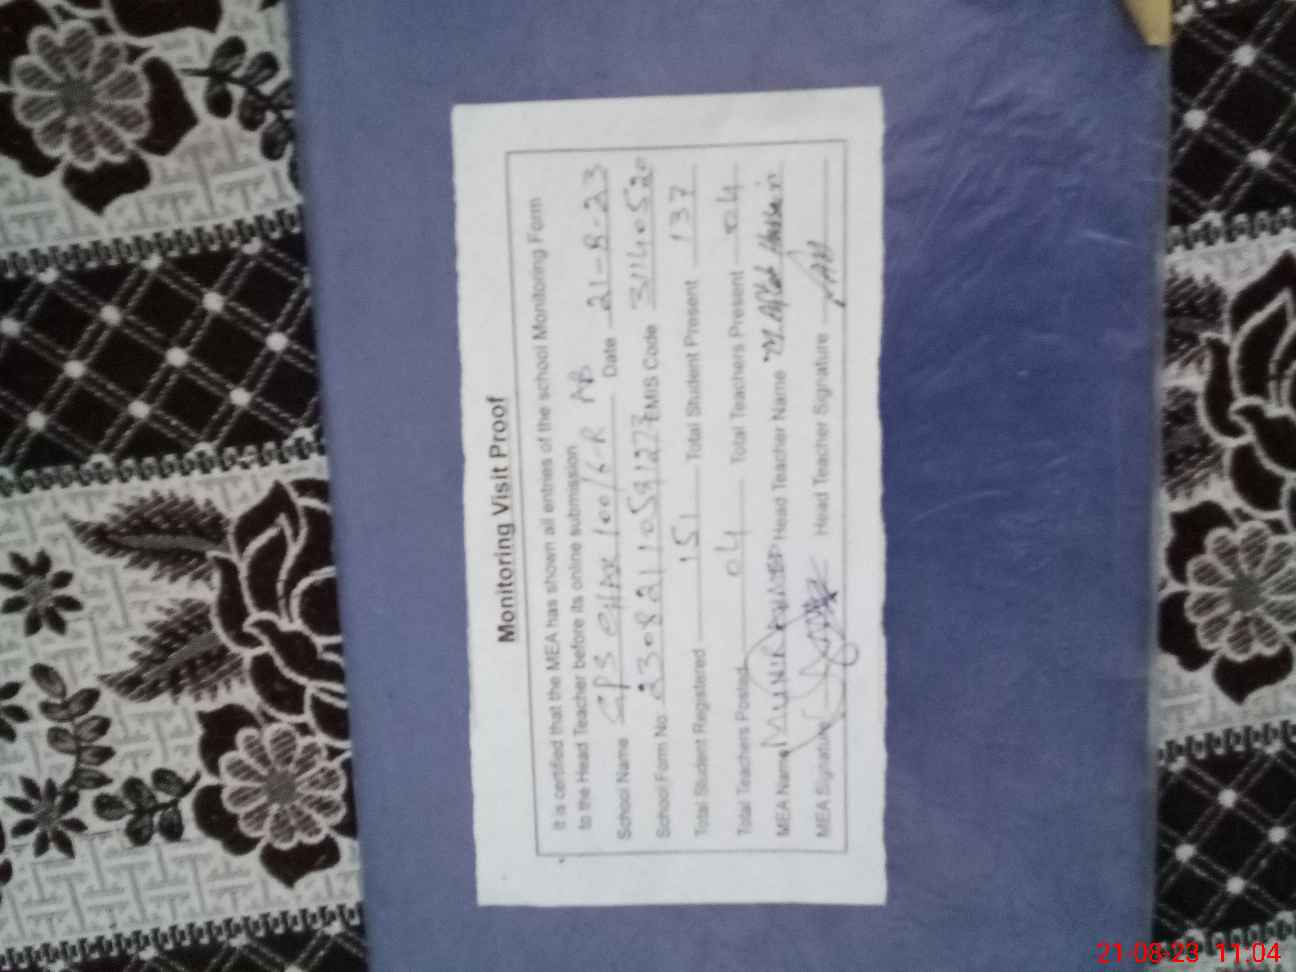 Monitoring Visit Proof
It is certified that the MEA has shown all entries of the school Monitoring Form
to the Head Teacher before its online submission
School Name GPS CHAK 100/6-R AB Date 21-8-23
School Form No. 23082110591273 EMIS Code 31140520
Total Student Registered 151 Total Student Present 137
Total Teachers Posted 04 Total Teachers Present 04
MEA Name MUNIR AHMED Head Teacher Name M. Aftab Hussain
MEA Signature Head Teacher Signature
21-08-23 11:04